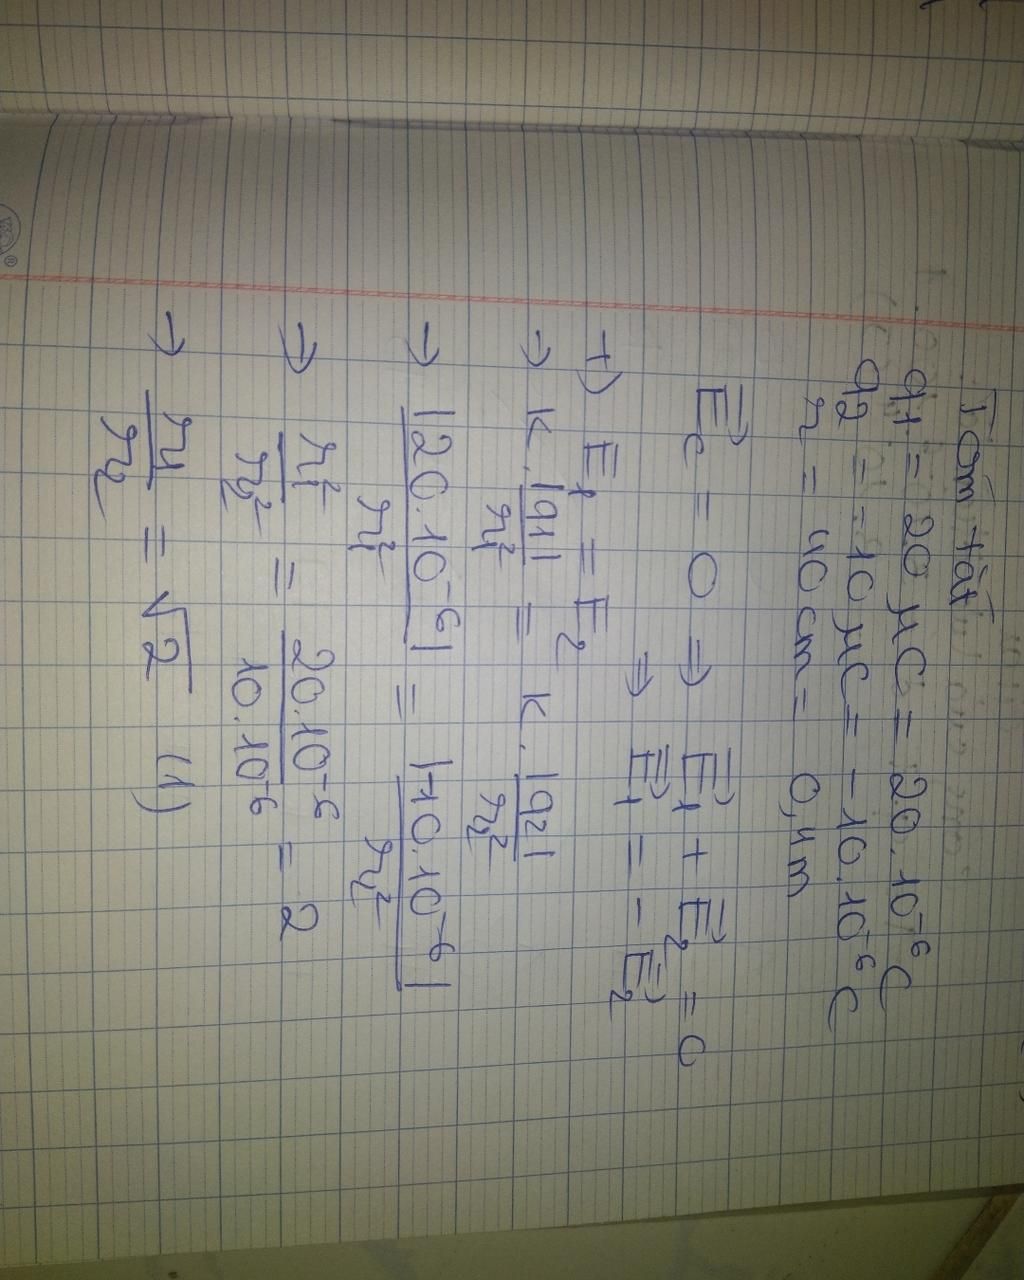 Tóm tắt
q1 = 20 μC = 20.10⁻⁶ C
q2 = -10 μC = -10.10⁻⁶ C
r = 40 cm = 0,4m
E⃗c = 0 ⇒ E⃗1 + E⃗2 = 0
⇒ E⃗1 = - E⃗2
+) E1 = E2
→ K. |q1|/r1² = K. |q2|/r2²
→ |20.10⁻⁶|/r1² = |-10.10⁻⁶|/r2²
→ r1²/r2² = 20.10⁻⁶/10.10⁻⁶ = 2
→ r1/r2 = √2 (1)